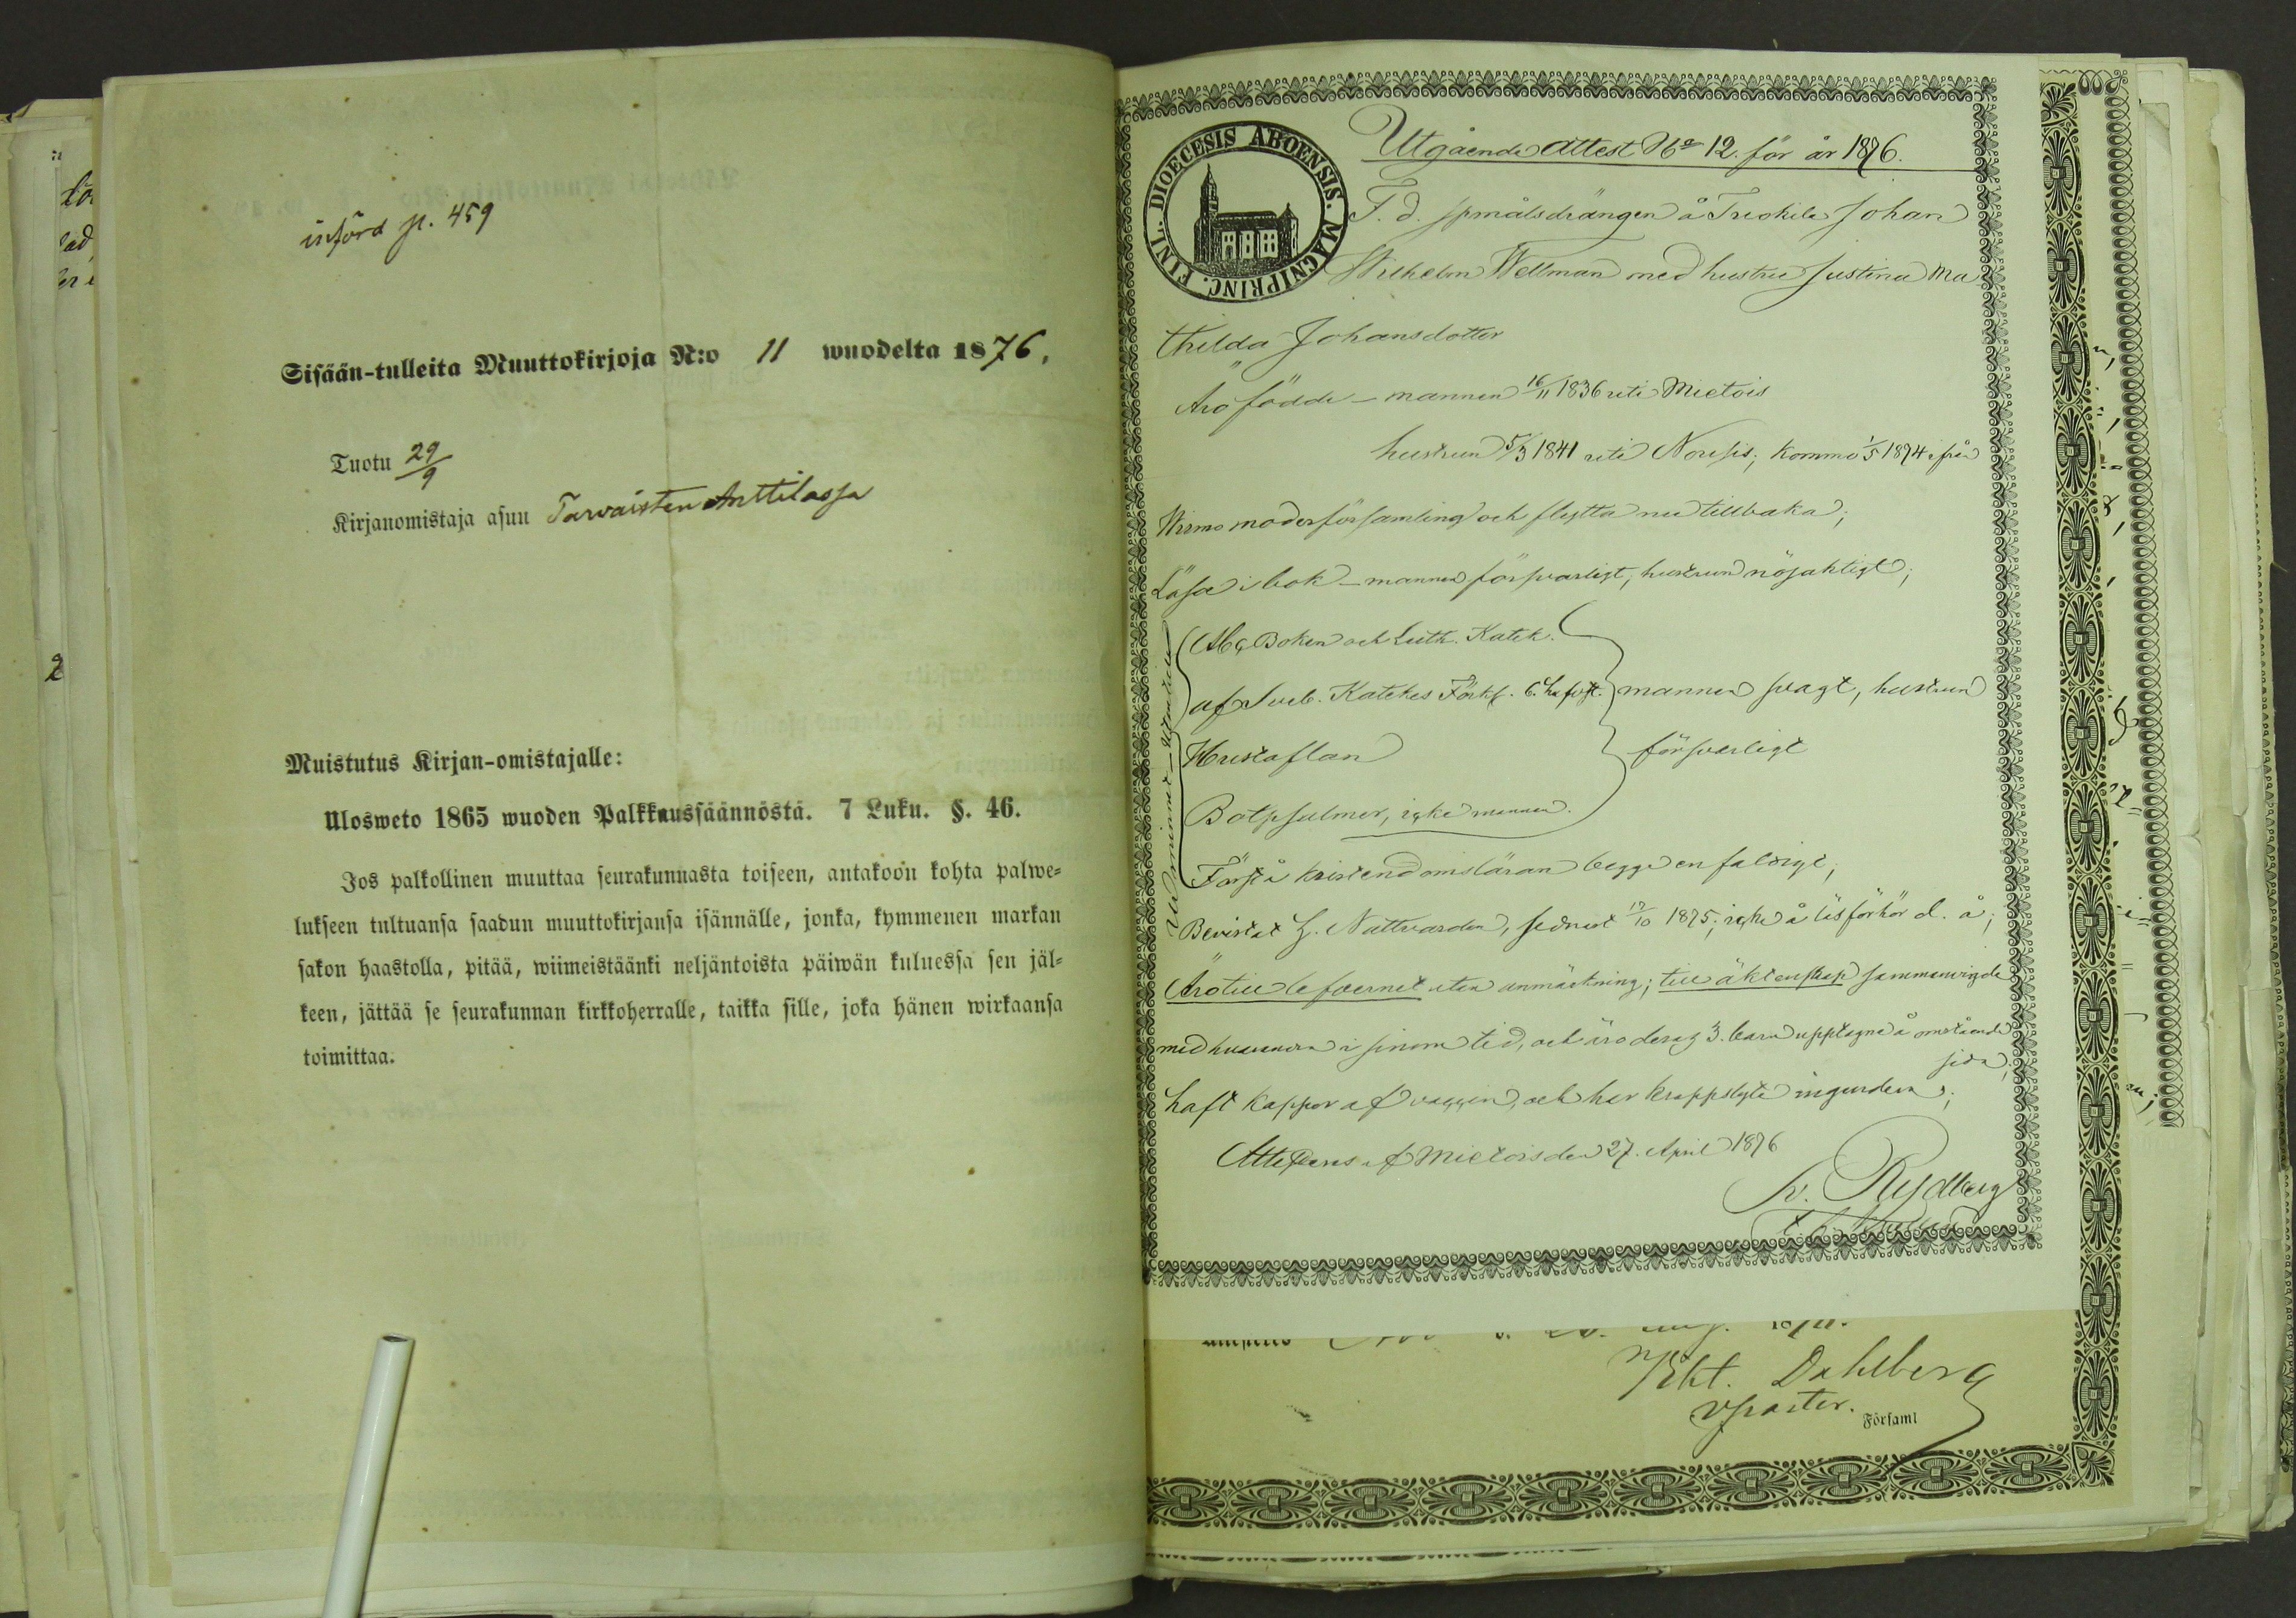 införd p. 459
Sisään-tulleita Muuttokirjoja N:o 11 wuodelta 1876.
Tuotu 29/9
Kirjanomistaja asuu Tarvaisten Anttilassa
Muistutus Kirjan-omistajalle:
Ulosweto 1865 wuoden Palkkaussäännöstä. 7 Luku. §. 46.
Jos palkollinen muuttaa seurakunnasta toiseen, antakoon kohta palwe-
lukseen tultuansa saadun muuttokirjansa isännälle, jonka, kymmenen markan
sakon haastolla, pitää, wiimeistäänki neljäntoista päiwän kuluessa sen jäl-
keen, jättää se seurakunnan kirkkoherralle, taikka sille, joka hänen wirkaansa
toimittaa.
FINL. DIOECESIS ABOENSIS. MAGNIPRINC.
Utgående Attest No 12. för år 1876.
F. d. spmålsdrängen å Johan
Wilhelm Wellman med hustru Justina Ma-
thilda Johansdotter
Äro födde - mannen 16/11 1836 uti Mietois
hustrun 5/3 1841 uti Nousis; kommo 1/5 1874 ifrån
Wirmo moderförsamling och flytta nu tillbaka;
Läsa i bok - mannen försvarligt, hustrun nöjaktigt;
Utur minnet
Abc Boken och Luth. Katek.
af Sveb. Katekes Förkl. mannen svagt, hustrun
Hustaflan försvarligt
Botpsalmer, icke mannen.
Förstå kristendomsläran begge enfaldigt;
Bevistat H. Nattvarden, sednast 17/10 1875; icke å läsförhör d. å;
Äro till lefvernet utan anmärkning; till äktenskap sammanvigde
med hvarandra i sinom tid, och äro deras 3. barn upptagne å omstående
sida;
haft koppor af vaccin, och har kroppslyte ingendera;
Attesteras af Mietois den 27. April 1876
K. Rydberg
Dahlberg
v. pastor.
Församl